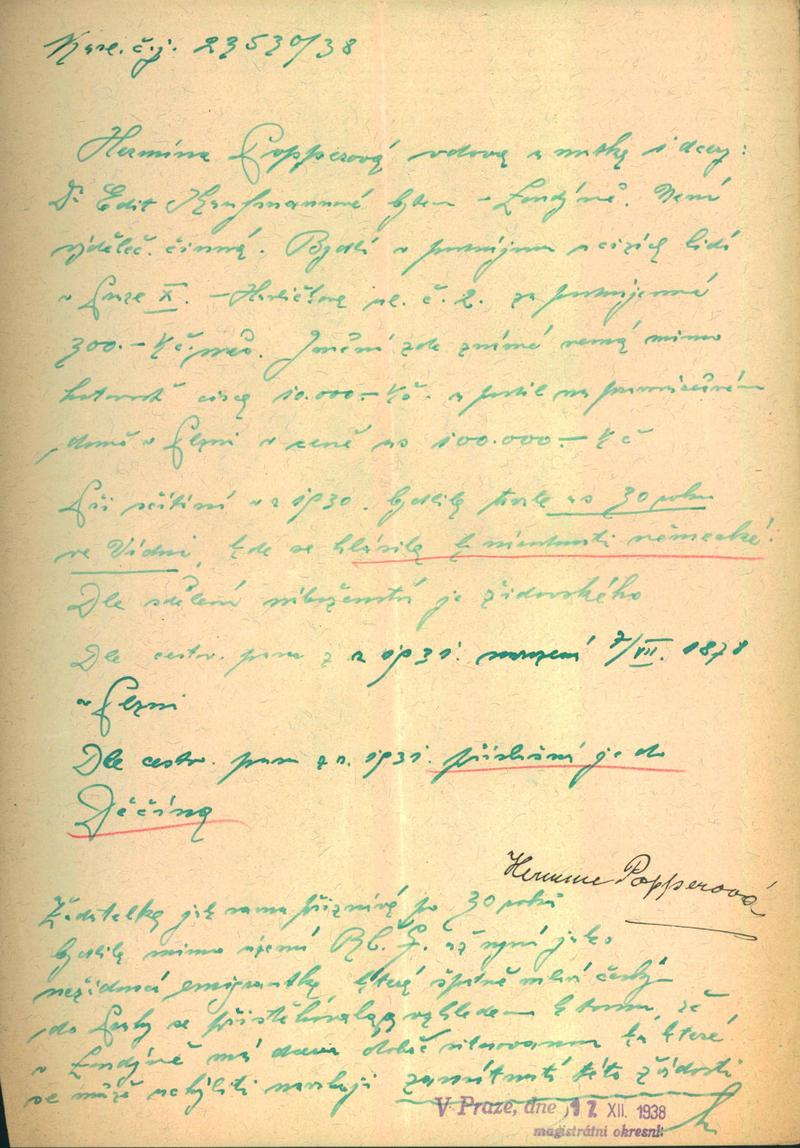 č.j. 23530/38
Hermina Popperová vdova a matka 1 dcery:
Dr Edit Kaufmannové bytem v Londýně. Není
výděleč. činná. Bydlí v podnájmu u cizích lidí
v Praze X. - Havlíčkova č. 2. za podnájemné
300.- Kč měs. Jmění zde známé nemá mimo
hotovost cca 10.000.- Kč. a podíl na
domě v Plzni v ceně as 100.000.- Kč
Při sčítání v r 1930. bydlila as 30 roků
ve Vídni, kde se hlásila k národnosti německé.
Dle sdělení náboženství je židovského
Dle cestov. pasu z r 1931. narozená 7/VII. 1878
v Plzni
Dle cestov. pasu z r. 1931. příslušná je do
Děčína
Hermine Popperová
Žadatelka jak sama přiznává po 30 roků
bydlila mimo území Rb. Č. až nyní jako
nežádoucí emigrantka která špatně mluví česky
do Prahy se přistěhovala a vzhledem k tomu, že
v Londýně má dceru dobře situovanou ke které
se může uchýliti navrhuji zamítnutí této žádosti
V Praze, dne 17. XII. 1938
magistrátní okresní